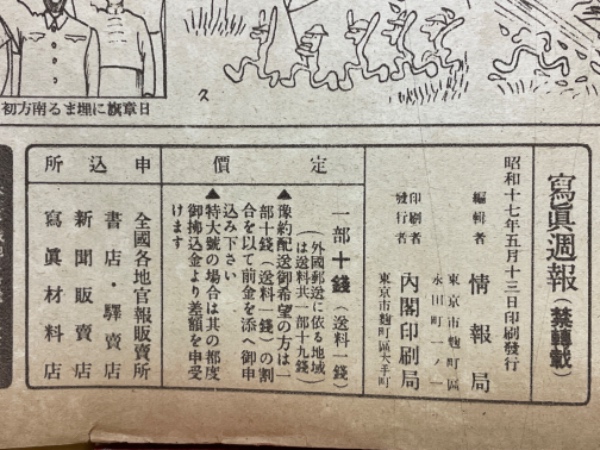 日章旗に埋まる南方初
ス
寫眞週報（禁轉載）
昭和十七年五月十三日印刷發行
編輯者
情報局
東京市麹町區
永田町一ノ一
印刷者
發行者
內閣印刷局
東京市麹町區大手町
定價
一部十錢（送料一錢）
（外國郵送に依る地域
は送料共一部十九錢）
▲豫約配送御希望の方は一
部十錢（送料一錢）の割
合を以て前金を添へ御申
込み下さい
▲特大號の場合は其の都度
御拂込金より差額を申受
けます
申込所
全國各地官報販賣所
書店・驛賣店
新聞販賣店
寫眞材料店